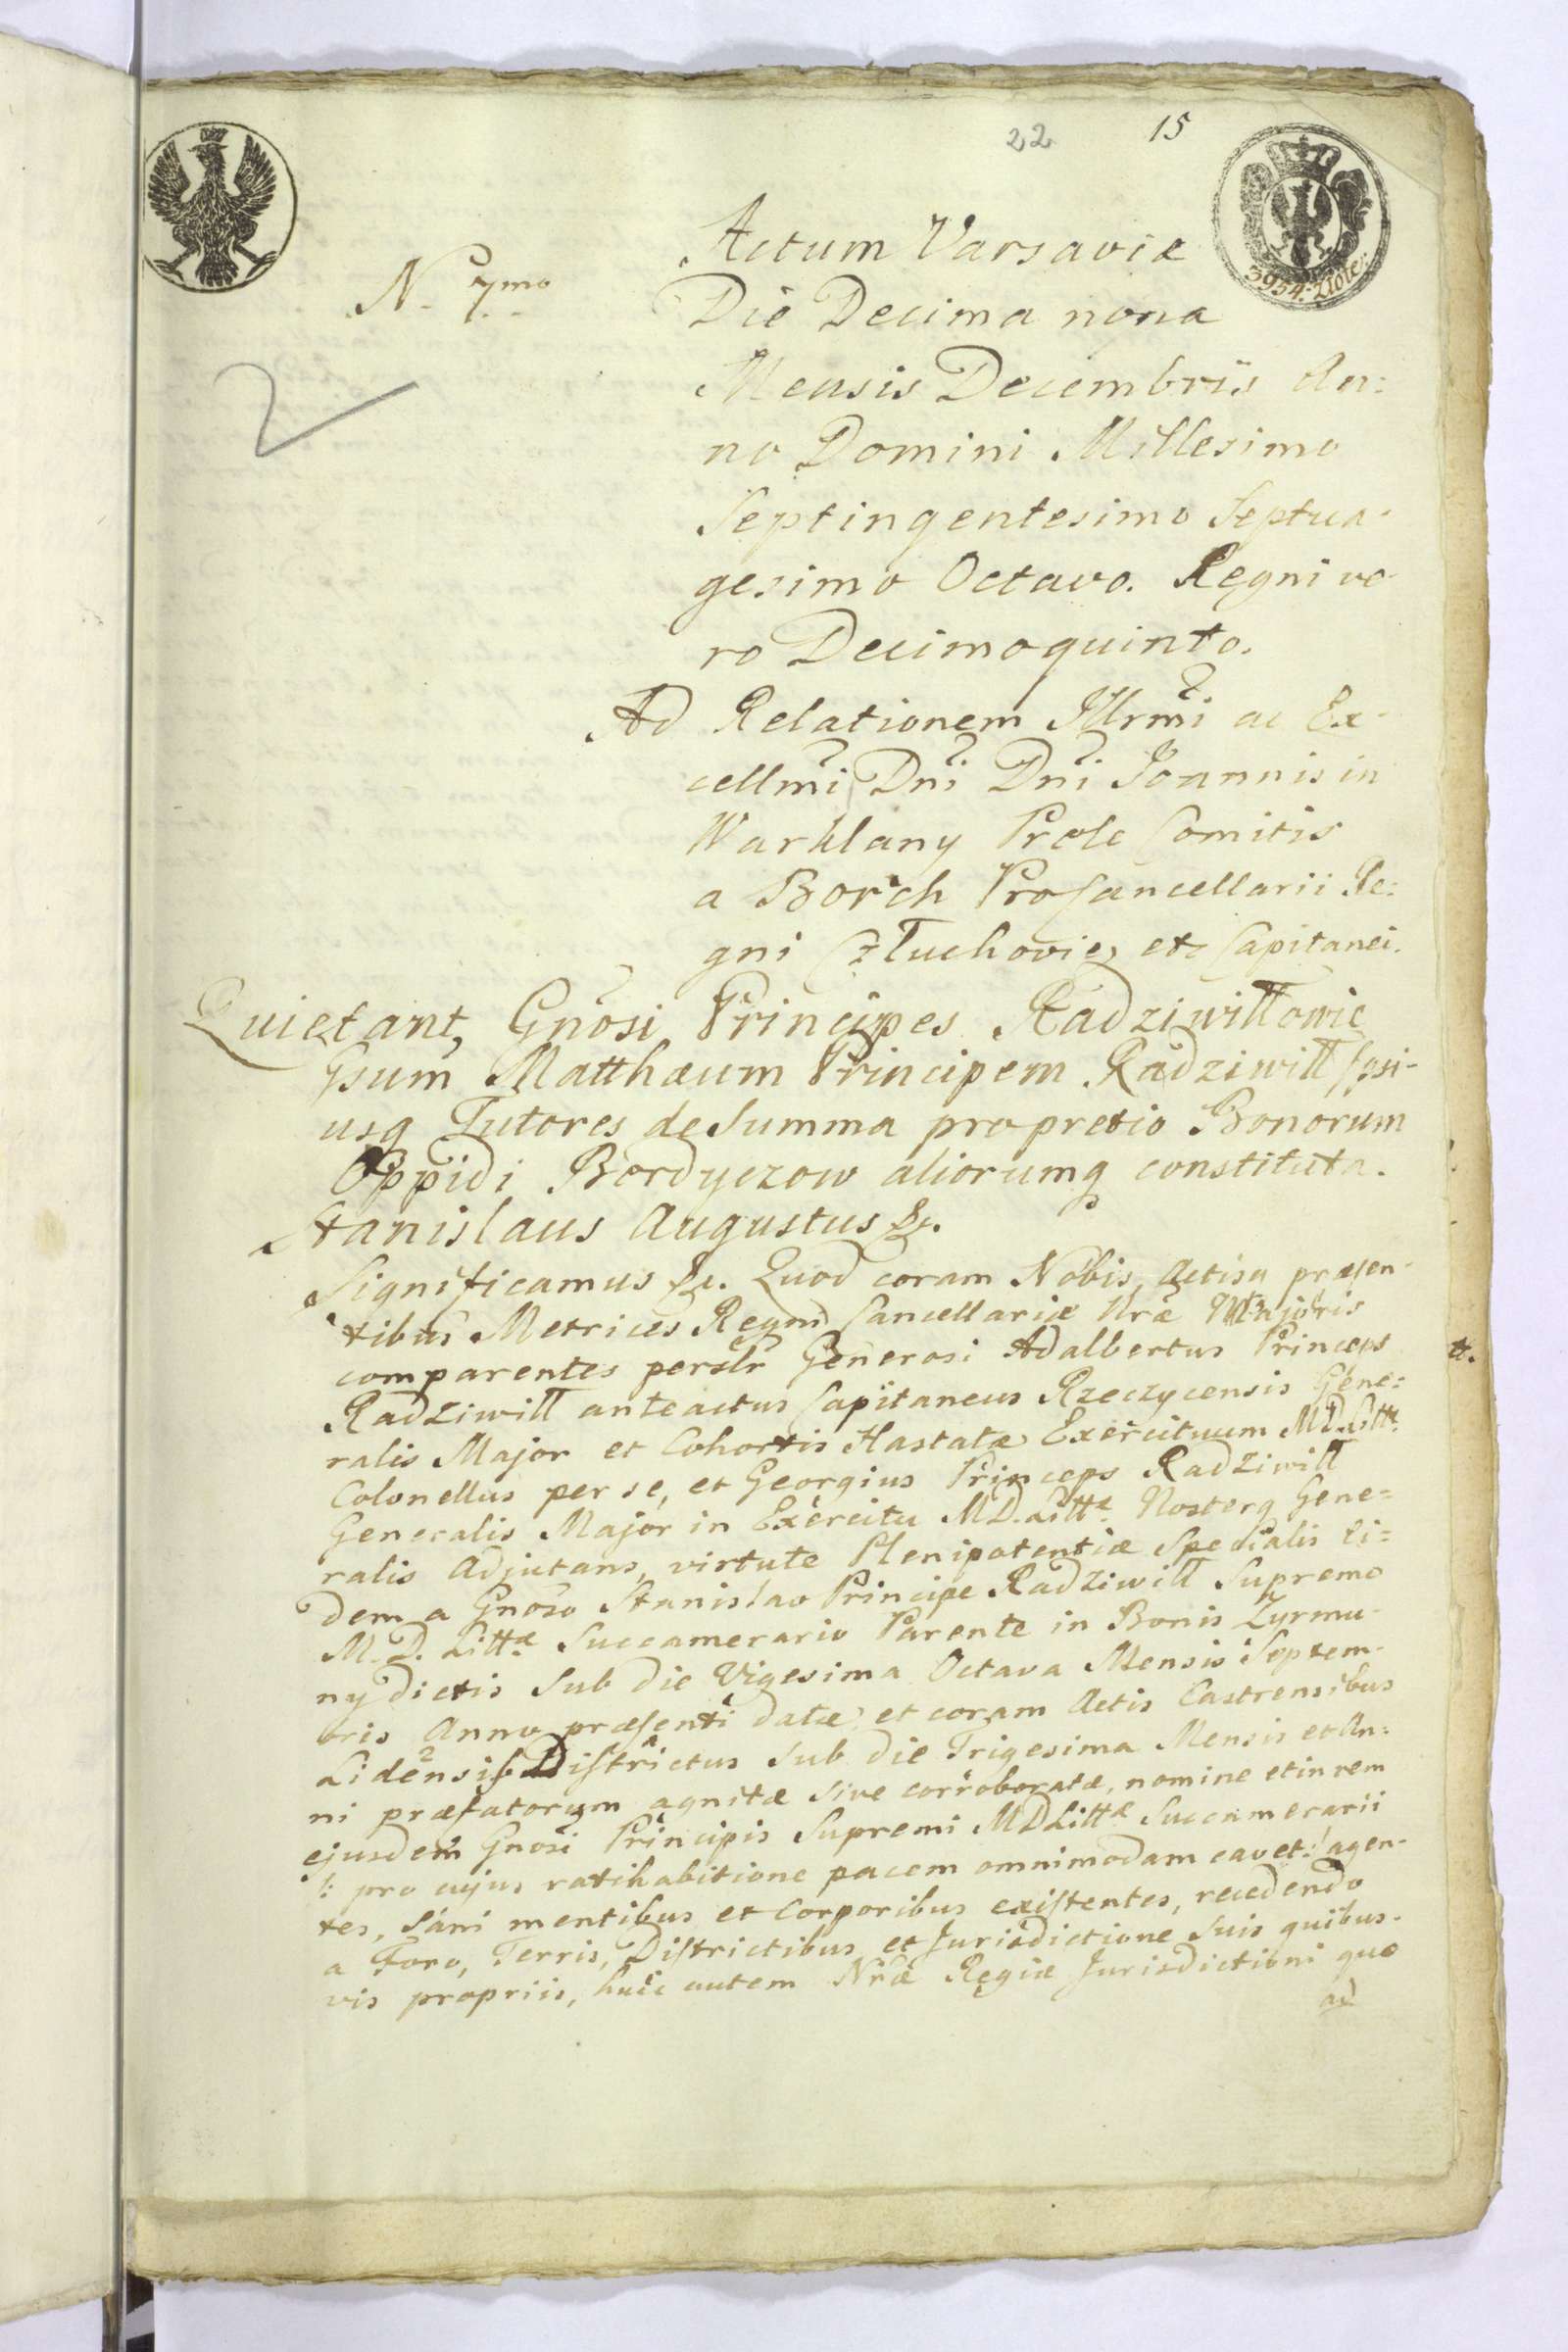 22 15
3954: Złote.
N. 7.mo
Actum Varsaviæ
Die Decima nona
Mensis Decembris An:
no Domini Millesimo
Septingentesimo Septua-
gesimo Octavo. Regni ve-
ro Decimoquinto.
Ad Relationem Illrmi ac Ex-
cellmi Dni Dni Joannis in
Warklany Prele Comitis
a Borch ProCancellarii Re:
gni Człuchovien etc Capitanei.
Quietant, Gnosi Principes Radziwiłłowie
Gsum Matthæum Principem Radziwiłł Ipsi-
usq Tutores de Summa pro pretio Bonorum
Oppidi Berdyczow aliorumq constituta.
Stanislaus Augustus &c.
Significamus &c. Quod coram Nobis, Actisq præsen-
tibus Metrices Regni Cancellariæ Nræ Majoris
comparentes persolr Generosi Adalbertus Princeps
Radziwiłł anteactus Capitaneus Rzeczycensis Gene:
ralis Major et Cohortis Hastatæ Exercituum M.D. Littæ
Colonellus per se, et Georgius Princeps Radziwiłł
Generalis Major in Exercitu M.D. Littæ Nosterq Gene=
ralis Adjutans, virtute Plenipotentiæ Specialis ei=
dem a Gnoso Stanislao Principe Radziwiłł Supremo
M.D. Littæ Succamerario Parente in Bonis Zyrmu-
ny dictis Sub die Vigesima Octava Mensis Septem-
bris Anno præsenti datæ et coram Actis Castrensibus
Lidensis Districtus Sub die Trigesima Mensis et An:
ni præfatorum agnitæ sive corroboratæ, nomine et in rem
ejusdem Gnosi Principis Supremi M D Littæ Succamerarii
/: pro cujus ratihabitione pacem omnimodam cavet :/ agen-
tes, Sani mentibus et Corporibus existentes, recedendo
a Foro, Terris, Districtibus et Jurisdictione Suis quibus-
vis propriis, huic autem Nræ Regiæ Jurisdictioni quo
ad